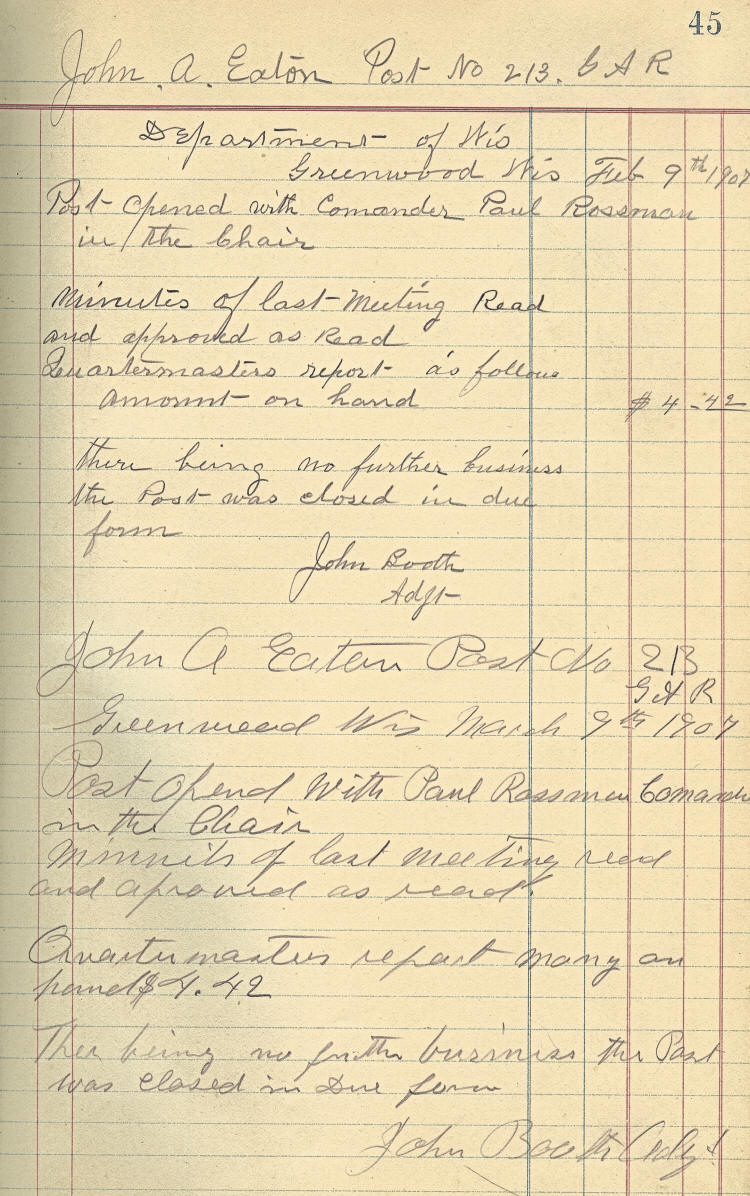 45
John . A. Eaton Post No 213. G A R
Department of Wis
Greenwood Wis Feb 9th 1907
Post Opened with Comander Paul Rossman
in the Chair
Minutes of last Meeting Read
and approved as Read
Quartermasters report as follows
amount on hand $4-42
there being no further business
the Post was closed in due
form
John Booth
Adjt
John A Eaton Post No 213
G A R
Greenwood Wis March 9th 1907
Post Opend With Paul Rossman Comander
in the Chair
Minnits of last meeting read
and aproved as read.
Quartermasters report mony on
hand $4.42
Ther being no further business the Post
was Closed in Due form
John Booth Adjt